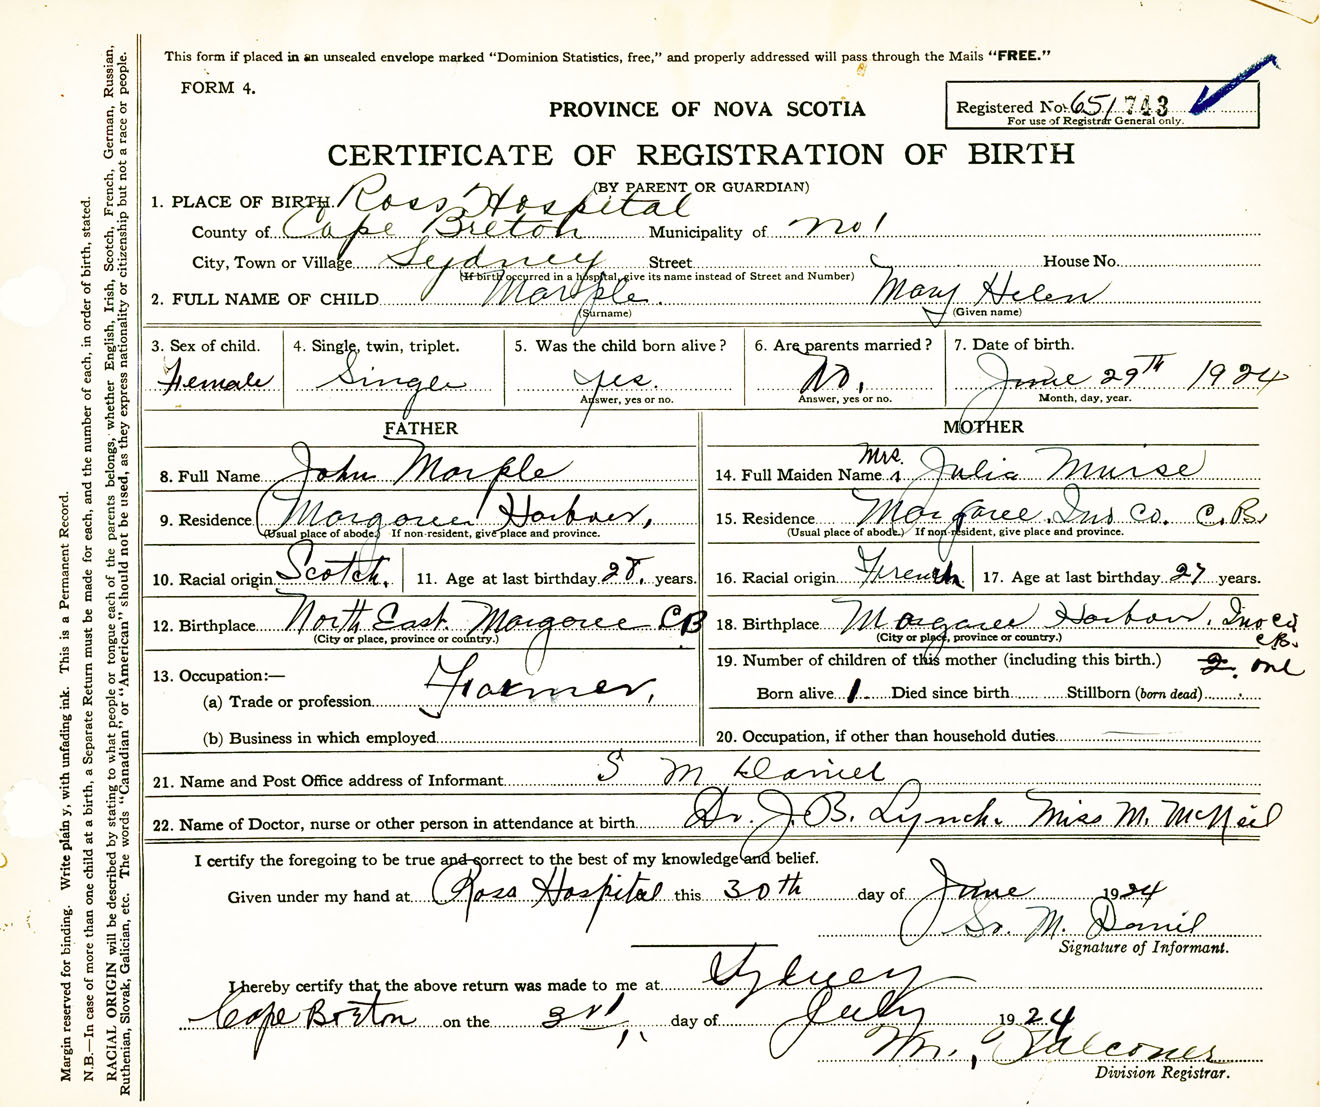 This form if placed in an unsealed envelope marked “Dominion Statistics, free,” and properly addressed will pass through the Mails “FREE.”
FORM 4.
PROVINCE OF NOVA SCOTIA
Registered No. 651 743
For use of Registrar General only.
CERTIFICATE OF REGISTRATION OF BIRTH
(BY PARENT OR GUARDIAN)
1. PLACE OF BIRTH. Ross Hospital
County of Cape Breton Municipality of No 1
City, Town or Village Sydney Street House No.
(If birth occurred in a hospital, give its name instead of Street and Number)
2. FULL NAME OF CHILD Marple. Mary Helen
(Surname) (Given name)
3. Sex of child. 4. Single, twin, triplet. 5. Was the child born alive? 6. Are parents married? 7. Date of birth.
Female Single yes. No. June 29th 1924
Answer, yes or no. Answer, yes or no. Month, day, year.
FATHER MOTHER
8. Full Name John Marple 14. Full Maiden Name Mrs. Julia Muise
9. Residence Margaree Harbour, 15. Residence Margaree. Inv Co. C.B.
(Usual place of abode.) If non-resident, give place and province. (Usual place of abode.) If non-resident, give place and province.
10. Racial origin Scotch. 11. Age at last birthday 28. years. 16. Racial origin French 17. Age at last birthday 27 years.
12. Birthplace North East Margaree C.B 18. Birthplace Margaree Harbour, Inv Co
(City or place, province or country.) (City or place, province or country.) C.B.
13. Occupation:— 19. Number of children of this mother (including this birth.) 2. one
(a) Trade or profession Farmer, Born alive 1 Died since birth Stillborn (born dead)
(b) Business in which employed 20. Occupation, if other than household duties
21. Name and Post Office address of Informant S M Daniel
22. Name of Doctor, nurse or other person in attendance at birth Dr. J. B. Lynch. Miss M. McNeil
I certify the foregoing to be true and correct to the best of my knowledge and belief.
Given under my hand at Ross Hospital this 30th day of June 1924
Sr. M. Daniel
Signature of Informant.
I hereby certify that the above return was made to me at Sydney
Cape Breton on the 3rd day of July 1924
Wm. Falconer
Division Registrar.
Margin reserved for binding. Write plainly, with unfading ink. This is a Permanent Record.
N.B.—In case of more than one child at a birth, a Separate Return must be made for each, and the number of each, in order of birth, stated.
RACIAL ORIGIN will be described by stating to what people or tongue each of the parents belongs, whether English, Irish, Scotch, French, German, Russian,
Ruthenian, Slovak, Galician, etc. The words “Canadian” or “American” should not be used, as they express nationality or citizenship but not a race or people.